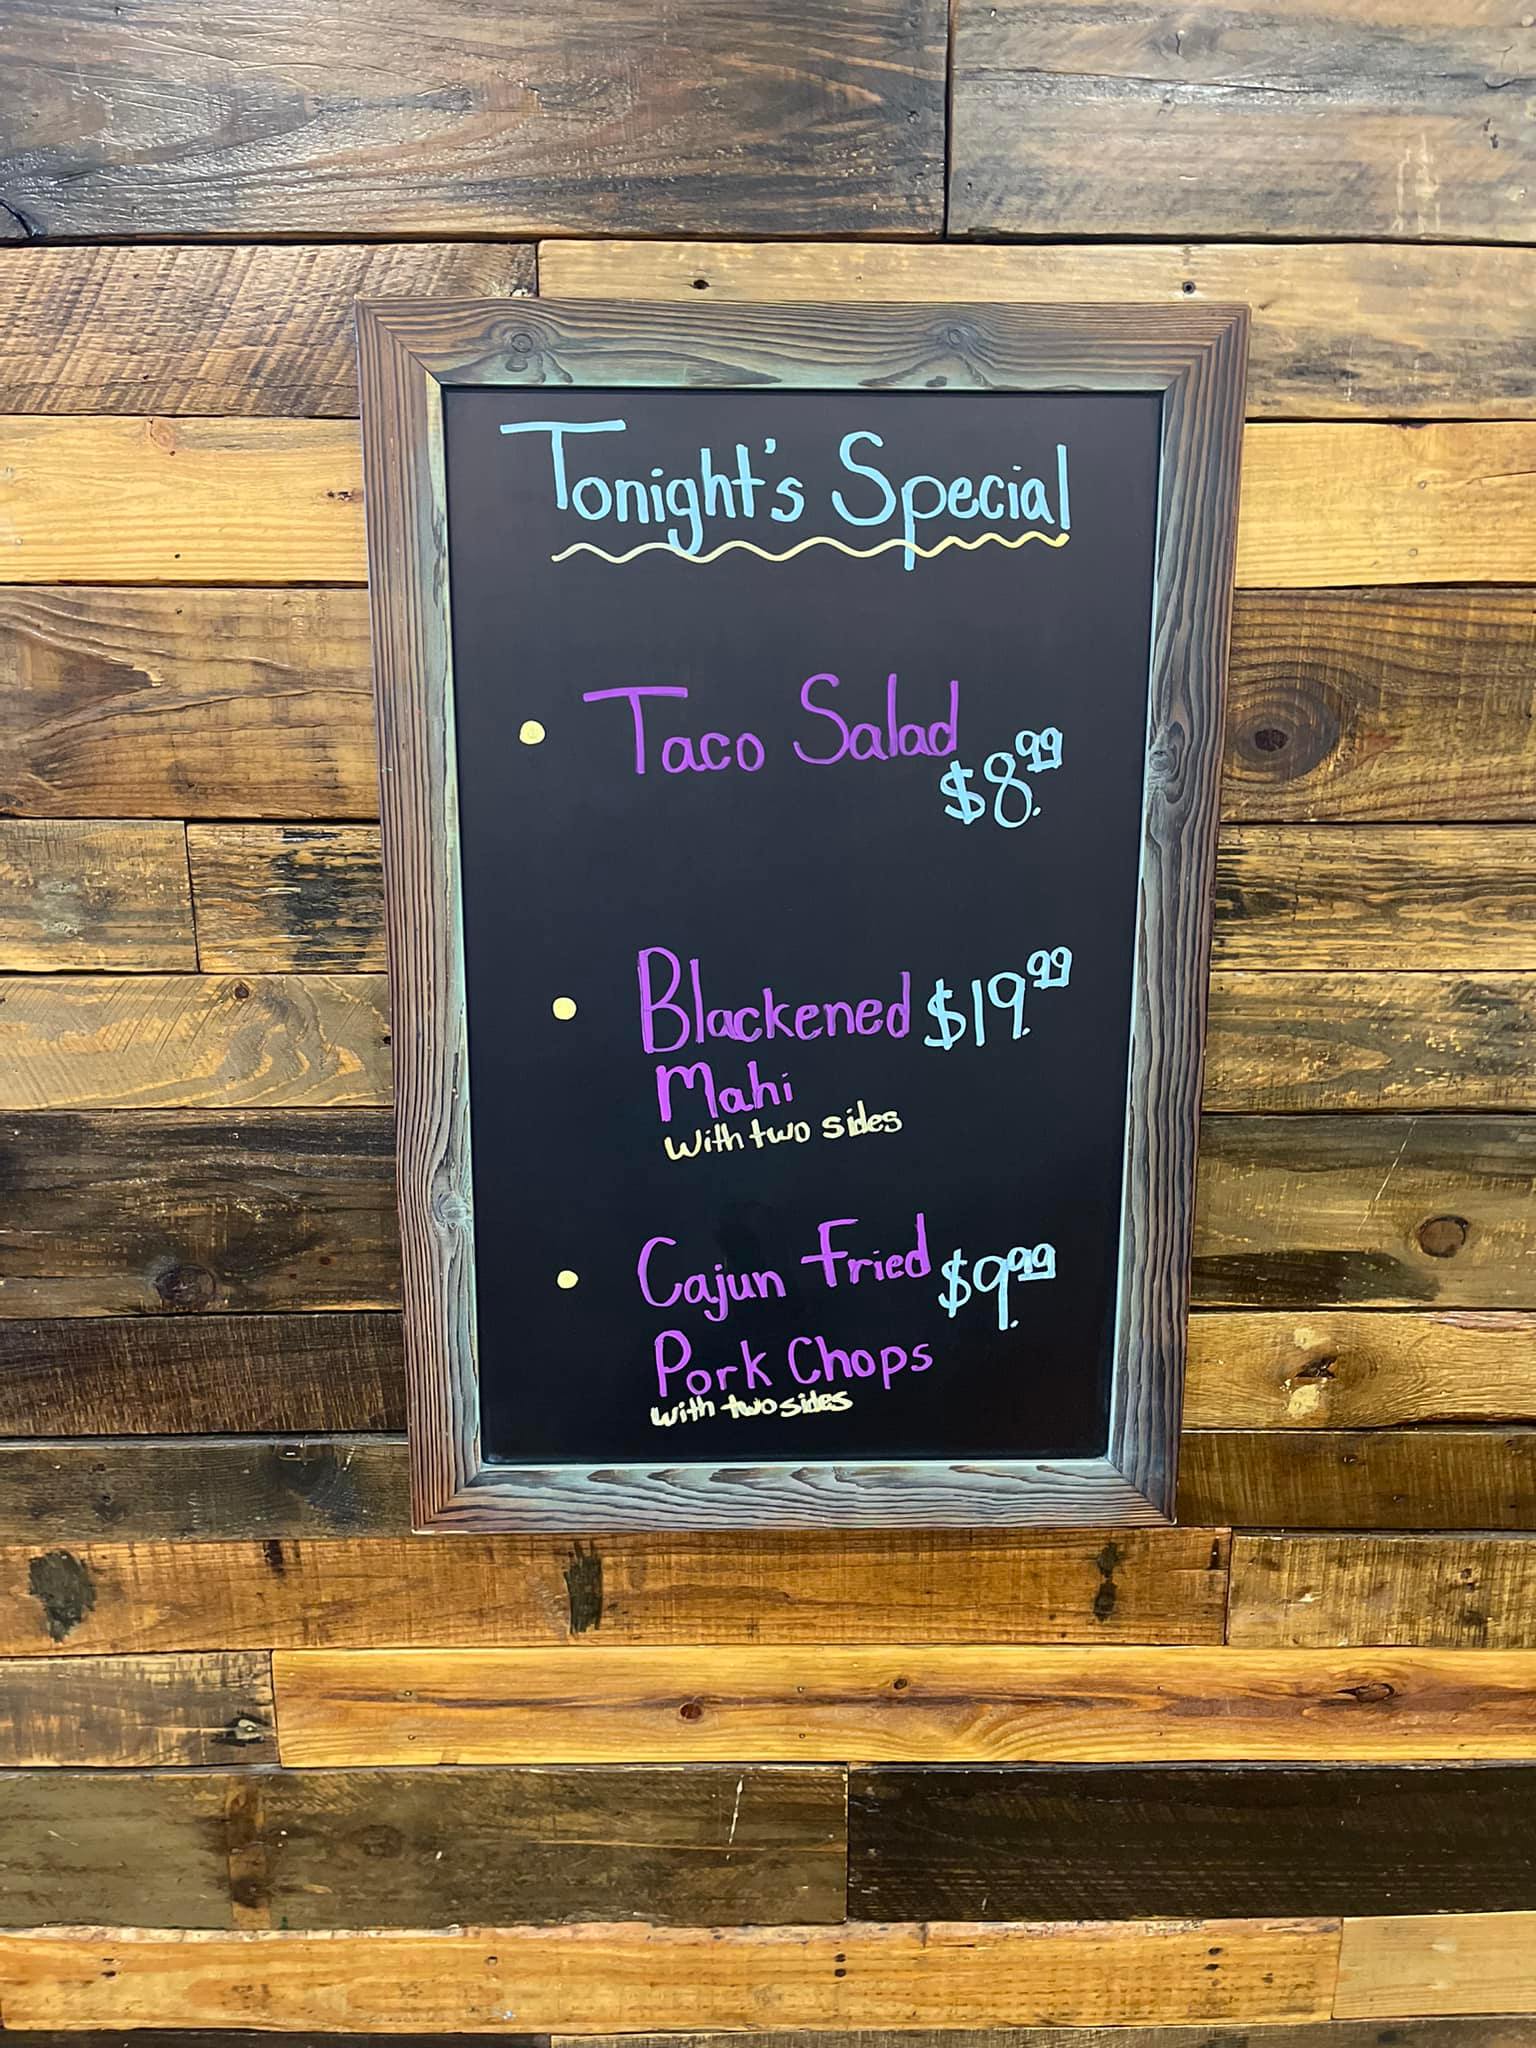 Tonight's Special
Taco Salad
$8.99
Blackened $19.99
Mahi
with two sides
Cajun Fried $9.99
Pork Chops
with two sides